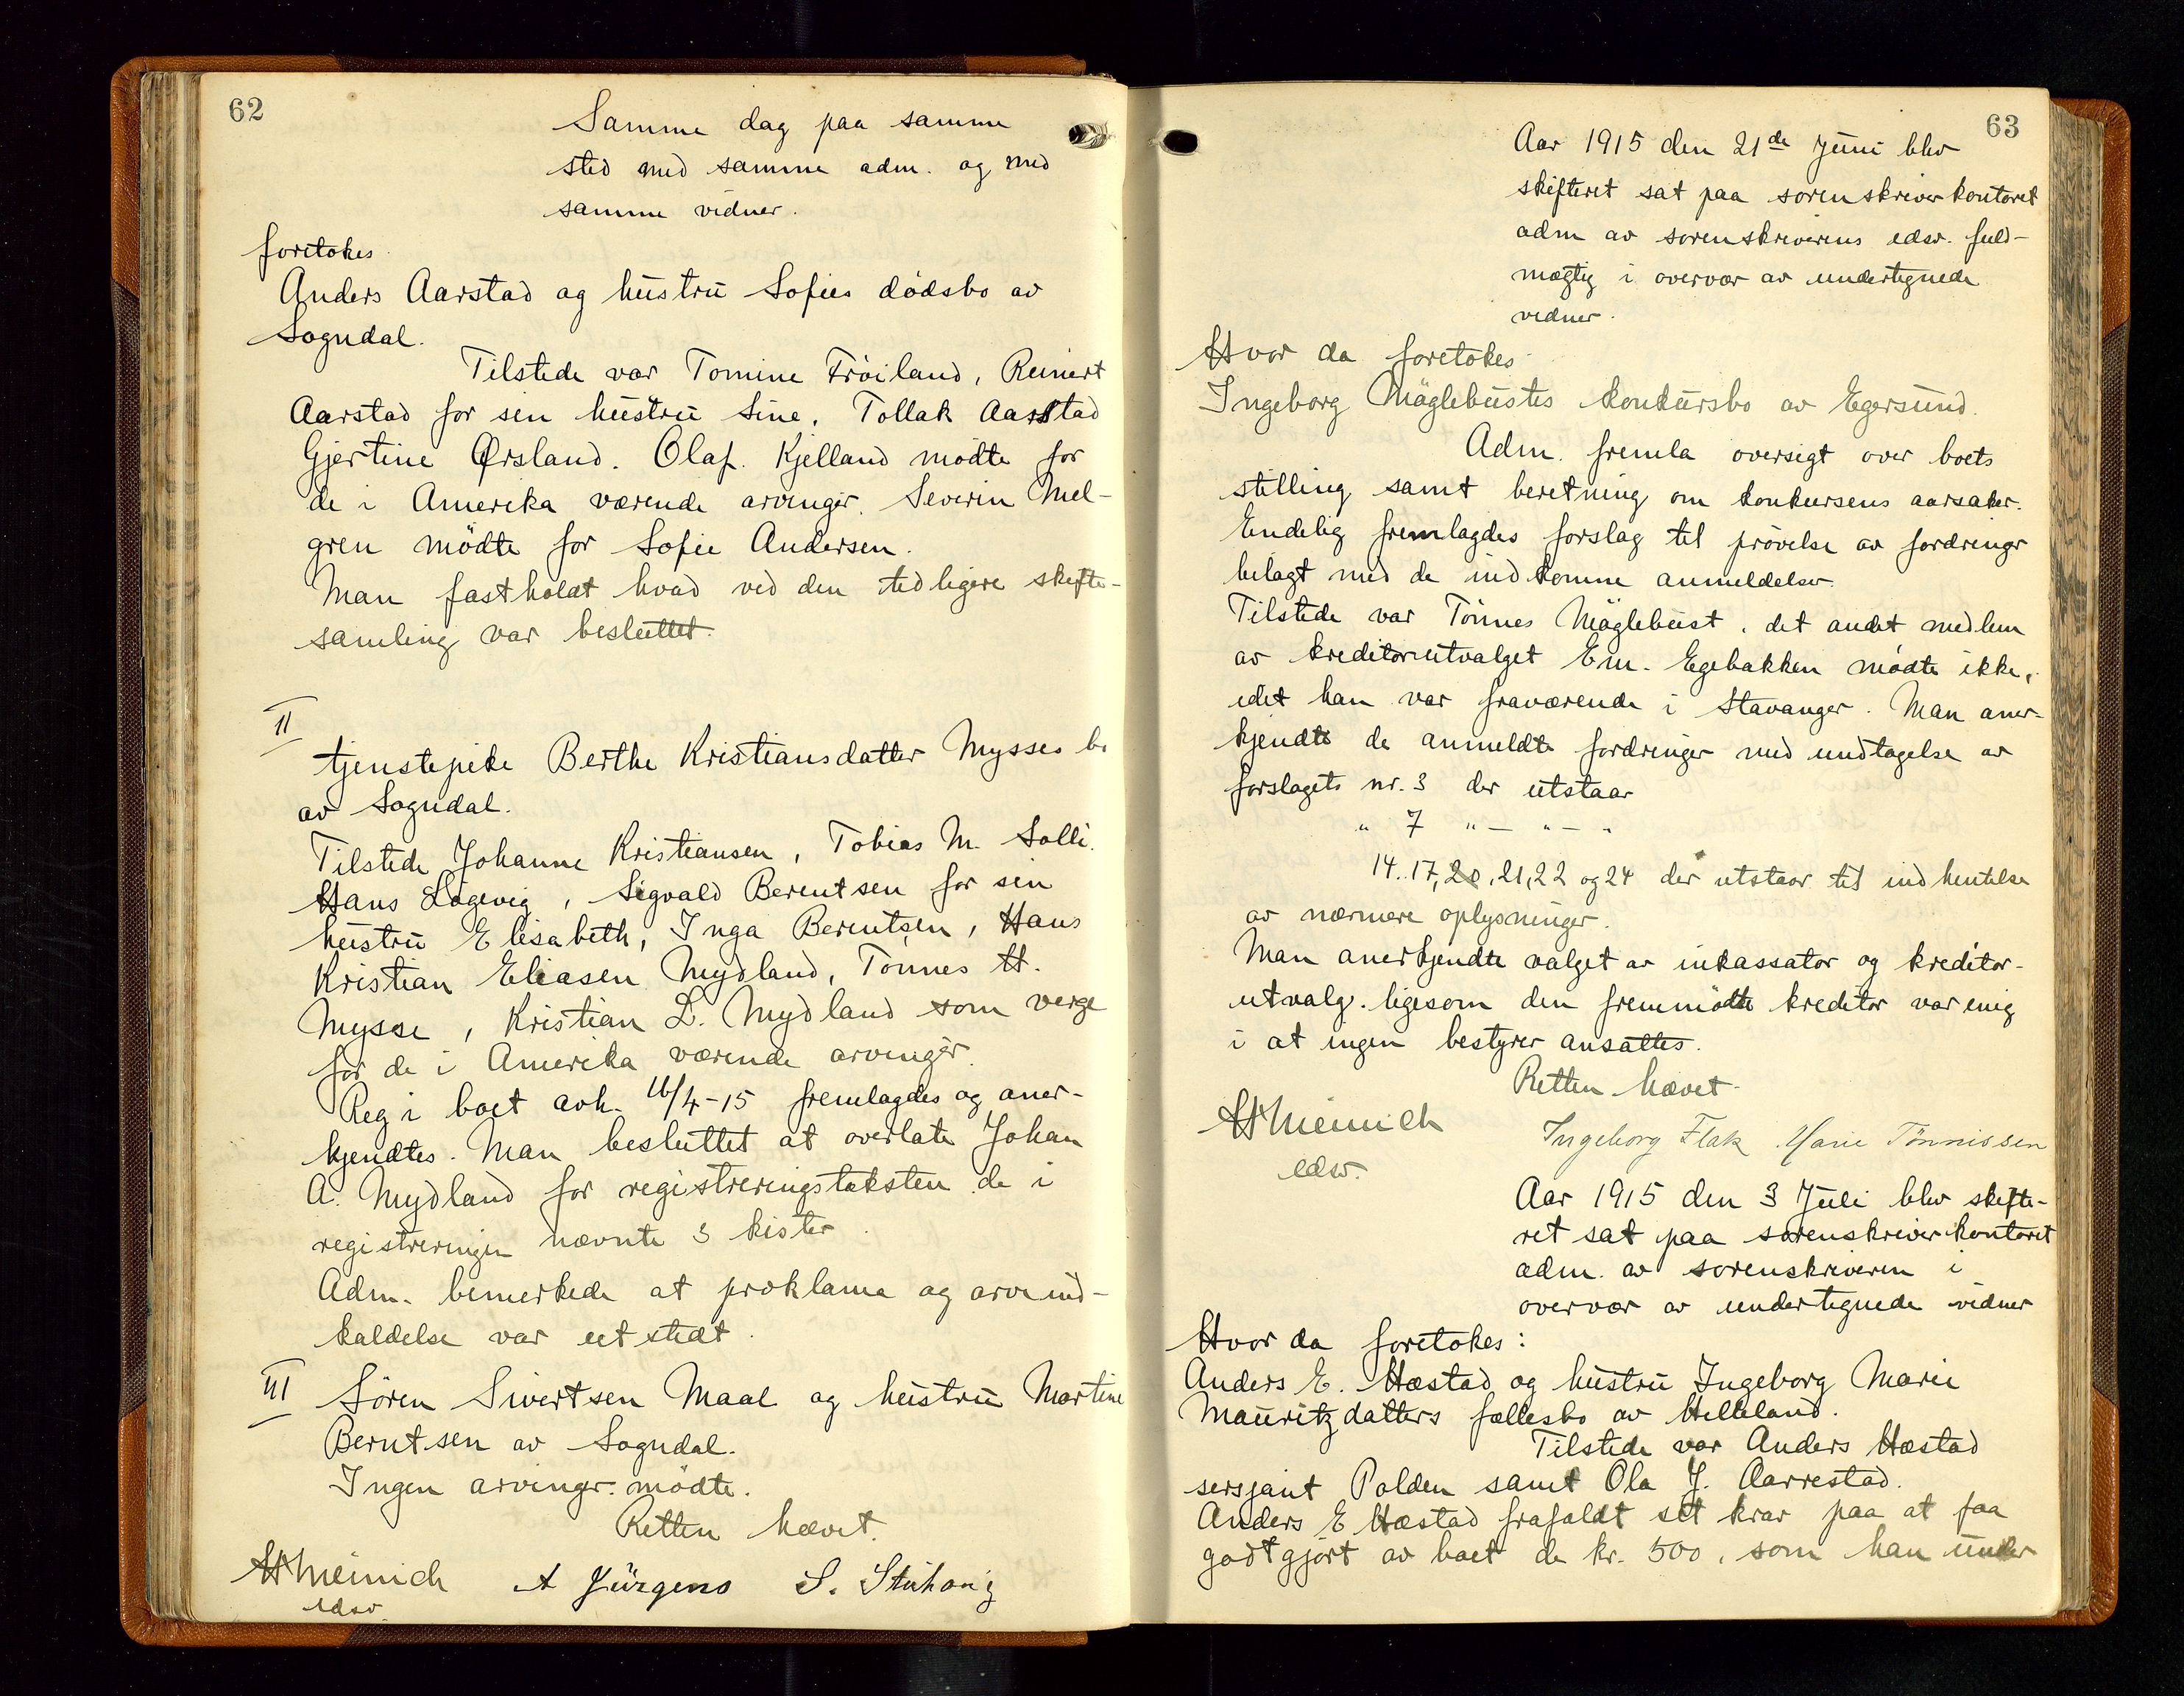 62
Samme dag paa samme
sted med samme adm. og med
samme vidner.
foretokes
Anders Aarstad og hustru Sofies dödsbo av
Sogndal.
Tilstede var Tomine Fröiland, Reinert
Aarstad for sin hustru Sine, Tollak Aarstad
Gjertine Ørsland. Olaf. Kjelland mödte for
de i Amerika værende arvinger. Severin Mel-
gren mödte for Sofie Andersen.
Man fastholdt hvad ved den tidligere skifte-
samling var besluttet.
II
tjenstepike Berthe Kristiansdatter Mysses bo
av Sogndal.
Tilstede Johanne Kristiansen, Tobias M. Solli.
Hans Løgevig, Sigvald Berentsen for sin
hustru Elisabeth, Inga Berentsen, Hans
Kristian Eliasen Mydland, Tönnes H.
Mysse, Kristian L. Mydland som verge
for de i Amerika værende arvinger.
Reg i boet avh. 16/4-15 fremlagdes og aner-
kjendtes. Man besluttet at overlate Johan
A. Mydland for registreringstaksten de i
registreringen nævnte 3 kister.
Adm. bemerkede at proklama og arveind-
kaldelse var utstedt.
III Sören Sivertsen Maal og hustru Martine
Berntsen av Sogndal.
Ingen arvinger mödte.
Retten hævet.
HHeinich A Jürgens S.
edsv.
63
Aar 1915 den 21de Juni blev
skifteret sat paa sorenskriverkontoret
adm av sorenskriverens edsv. fuld-
mægtig i overvær av undertegnede
vidner.
Hvor da foretokes
Ingeborg Mäglebustes konkursbo av Egersund.
Adm. fremla oversigt over boets
stilling samt beretning om konkursens aarsaker.
Endelig fremlagdes forslag til prövelse av fordringer
bilagt med de indkomne anmeldelser.
Tilstede var Tönnes Mäglebust, det andet medlem
av kreditorutvalget Em. Egebakken mödte ikke,
idet han var fraværende i Stavanger. Man aner-
kjendte de anmeldte fordringer med undtagelse av
forslagets nr. 3 der utstaar
" 7 " — " — "
14. 17, 20, 21, 22 og 24 der utstaar til indhentelse
av nærmere oplysninger.
Man anerkjendte valget av inkassator og kreditor-
utvalg. ligesom den fremmödte kreditor var enig
i at ingen bestyrer ansættes.
Retten hævet.
HHeinich Ingeborg Flak Marie Tönnissen
edsv.
Aar 1915 den 3 Juli blev skifte-
ret sat paa sorenskriverkontoret
adm. av sorenskriveren i
overvær av undertegnede vidner
Hvor da foretokes:
Anders E. Hæstad og hustru Ingeborg Marie
Mauritzdatters fællesbo av Helleland.
Tilstede var Anders Hæstad
sersjant Polden samt Ola J. Aarrestad.
Anders E Hæstad frafaldt sit krav paa at faa
godtgjort av boet de kr. 500, som han under